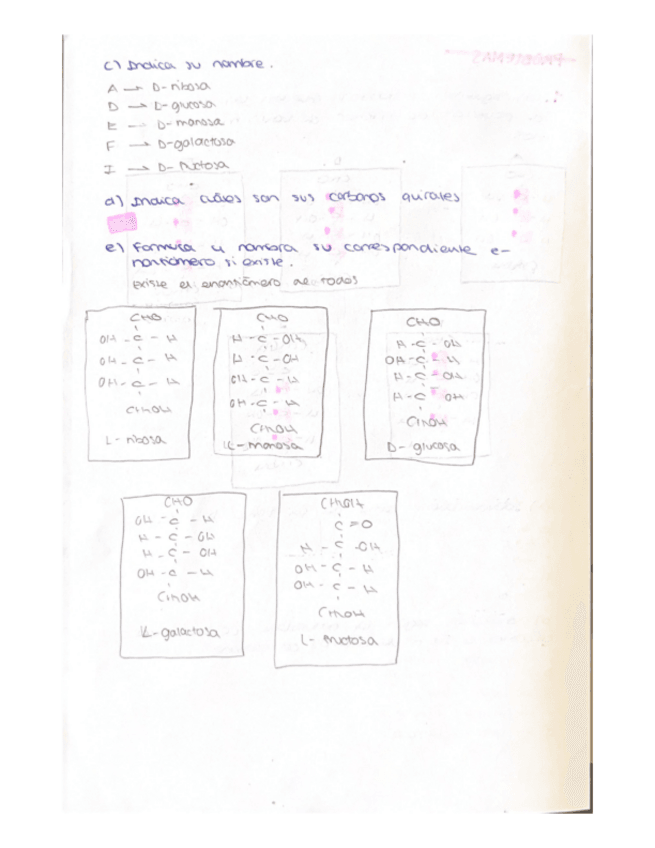 PROBLEMAS
c) Indica su nombre.
A → D-ribosa
D → L-glucosa
E → D-manosa
F → D-galactosa
I → D-fructosa
d) Indica cuáles son sus carbonos quirales
e) Formula y nombra su correspondiente e-
nantiómero si existe.
Existe el enantiómero de todos
CHO
OH - C - H
OH - C - H
OH - C - H
CH2OH
L-ribosa
CHO
H - C - OH
H - C - OH
OH - C - H
OH - C - H
CH2OH
L-manosa
CHO
H - C - OH
OH - C - H
H - C - OH
H - C - OH
CH2OH
D-glucosa
CHO
OH - C - H
H - C - OH
H - C - OH
OH - C - H
CH2OH
L-galactosa
CH2OH
C = O
H - C - OH
OH - C - H
OH - C - H
CH2OH
L-fructosa